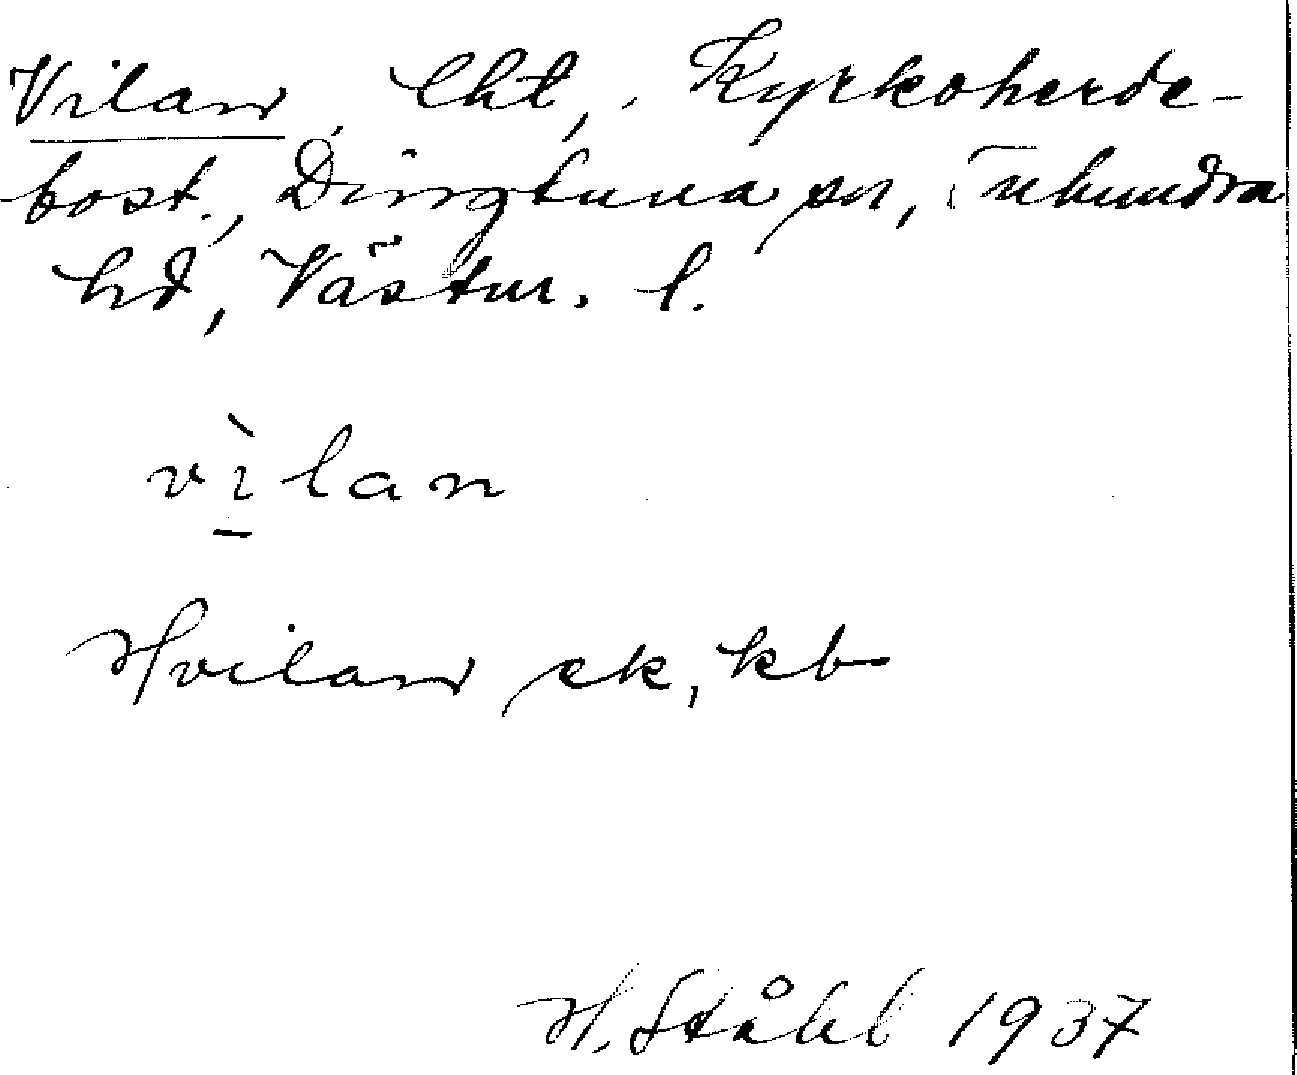 Vilan, lht, Kyrkoherde-
bost., Dingtuna sn, Tuhundra
hd, Västm. l.
vìlan
Hvilan ek, kb
H. Ståhl 1937